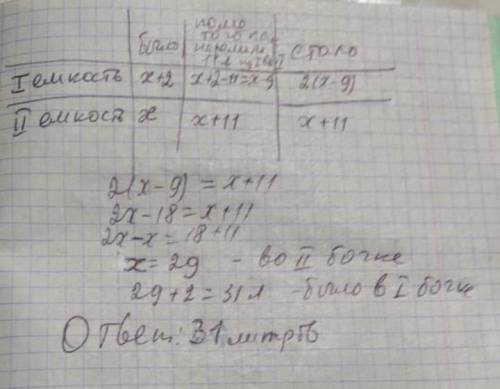 было после того как перелили 11 л из I во II стало
I емкость x+2 x+2-11=x-9 2(x-9)
II емкость x x+11 x+11
2(x-9) = x+11
2x-18=x+11
2x-x=18+11
x=29 - во II бочке
29+2=31л -было в I бочке
Ответ: 31 литров